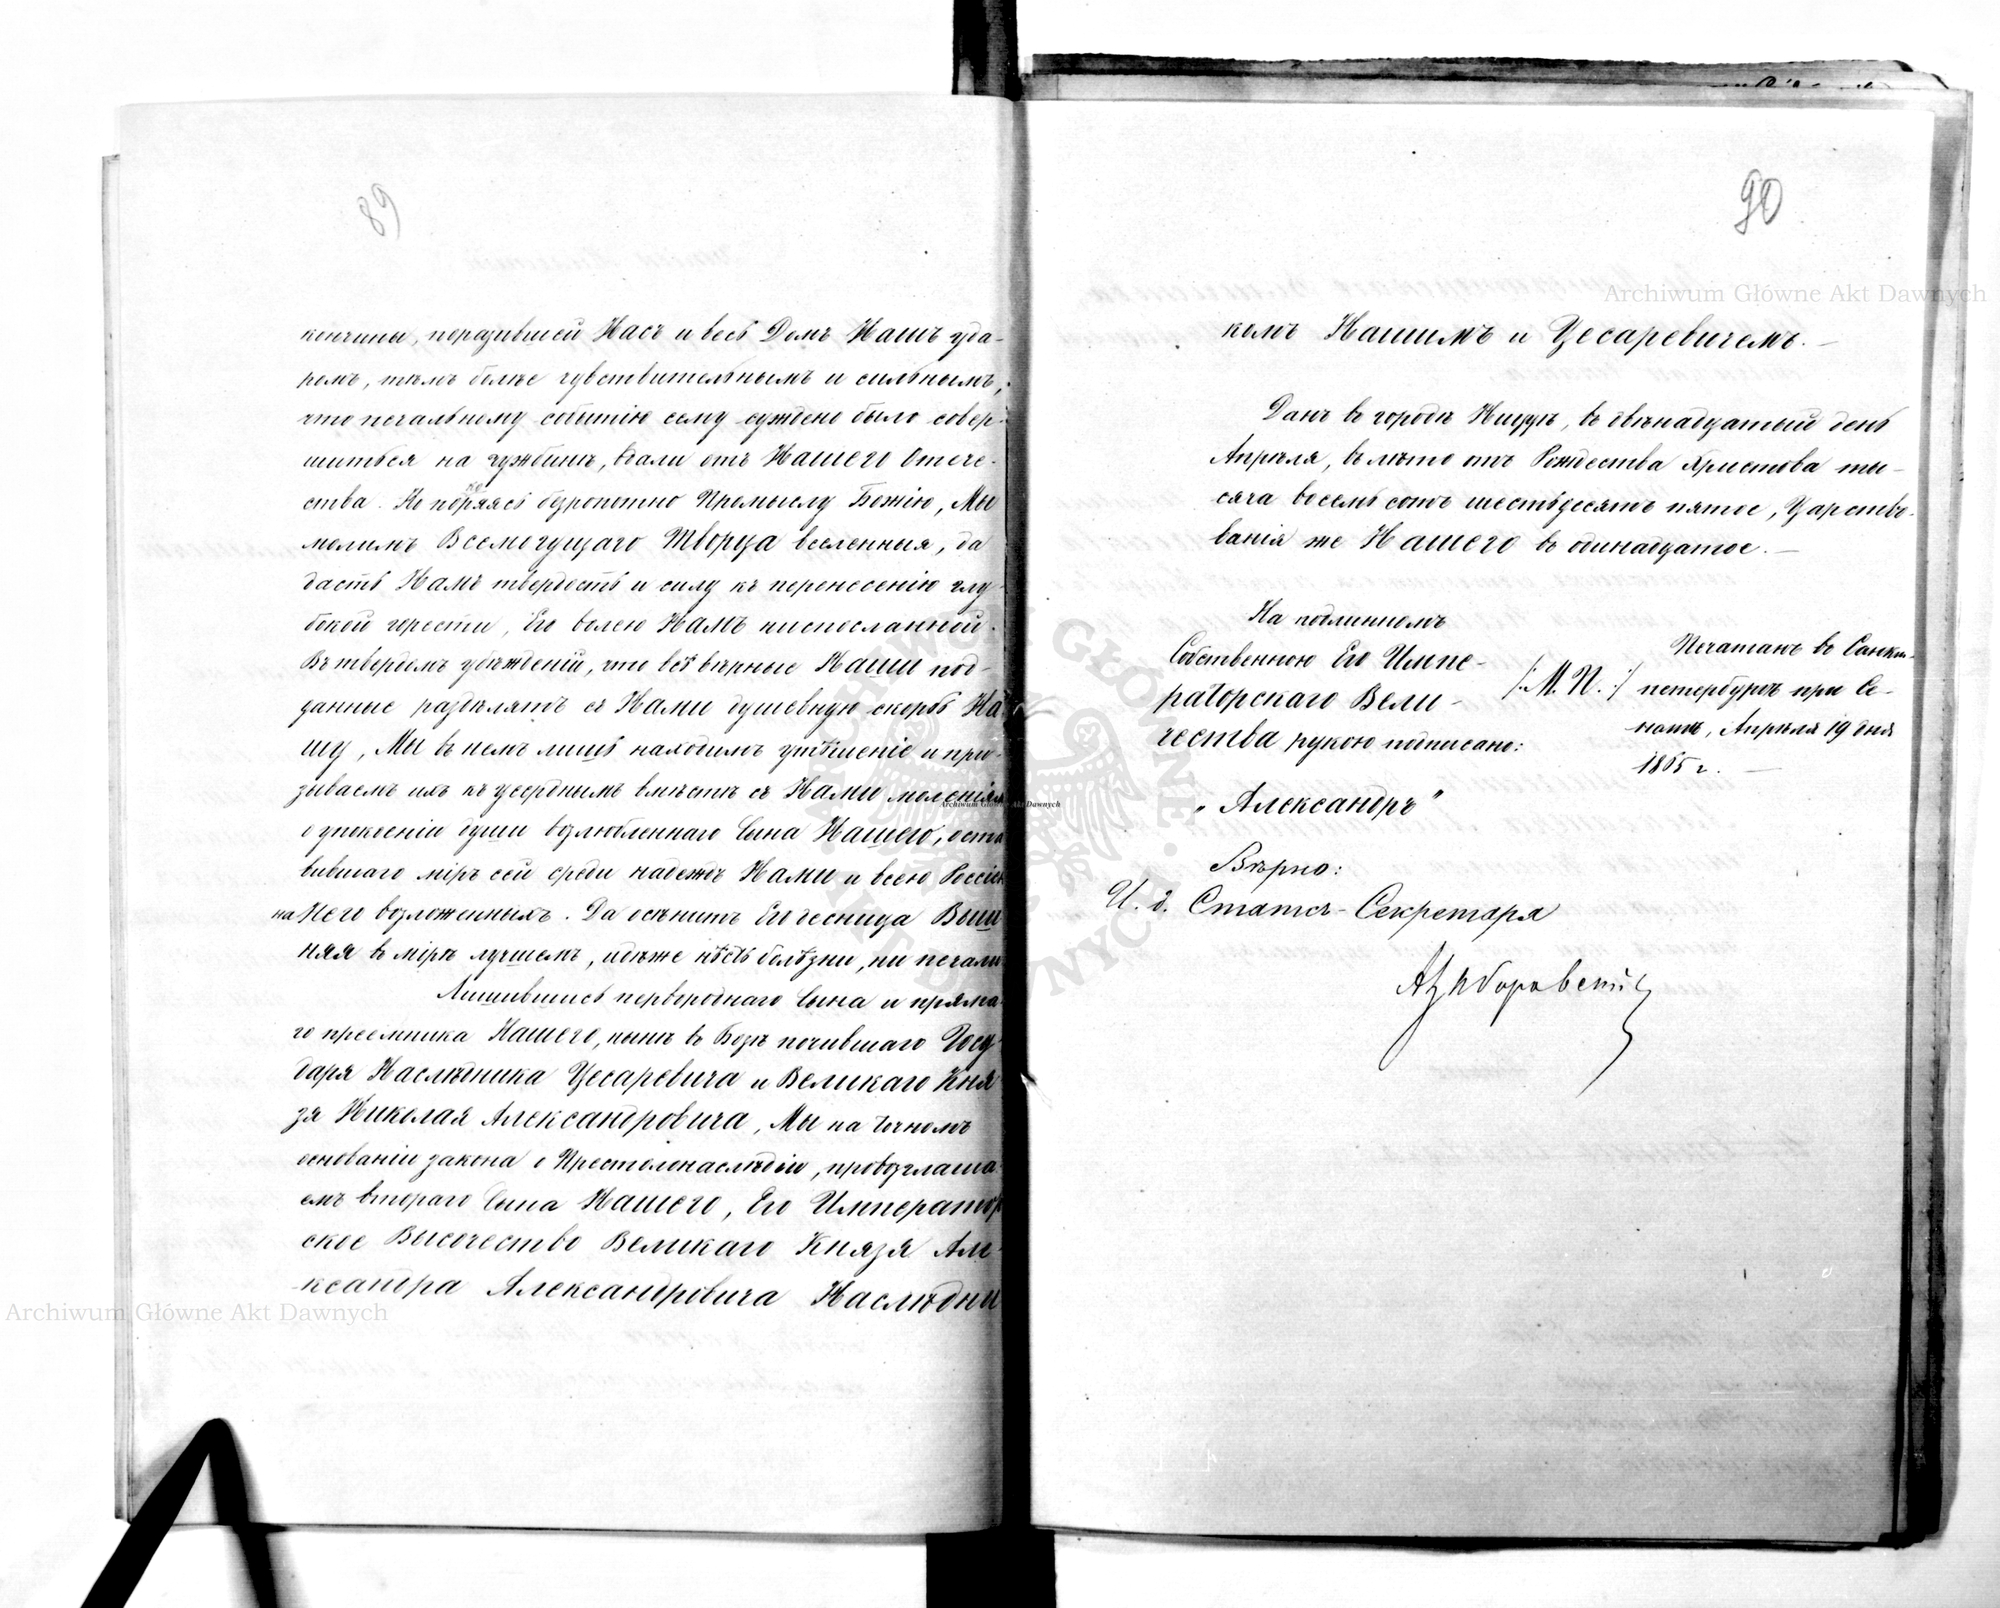 89
кончины, поразившей Насъ и весь Домъ Нашъ уда-
ромъ, тѣмъ болѣе чувствительнымъ и сильнымъ,
что печальному событію сему суждено было совер-
шиться на чужбинѣ, вдали отъ Нашего Отече-
ства. Но покоряясь безропотно Промыслу Божію, Мы
молимъ Всемогущаго Творца вселенныя, да
дастъ Намъ твердость и силу къ перенесенію глу-
бокой горести, Его волею Намъ ниспосланной.
Въ твердомъ убѣжденіи, что всѣ вѣрные Наши под-
данные раздѣлятъ съ Нами душевную скорбь На
шу, Мы въ немъ лишь находимъ утѣшеніе и при-
зываемъ ихъ къ усерднымъ вмѣстѣ съ Нами моленіям
о упокоеніи души возлюбленнаго Сына Нашего, оста
вившаго міръ сей среди надеждъ Нами и всею Россіею
на Него возложенныхъ. Да осѣнитъ Его десница Выш
няя въ мірѣ лучшемъ, идѣже нѣсть болѣзни, ни печали
Лишившись первороднаго Сына и пряма-
го преемника Нашего, нынѣ въ Бозѣ почившаго Госу-
даря Наслѣдника Цесаревича и Великаго Кня
зя Николая Александровича, Мы на точномъ
основаніи закона о Престолонаслѣдіи, провозглаша-
емъ втораго Сына Нашего, Его Император
ское Высочество Великаго Князя Але-
ксандра Александровича Наслѣдни
90
комъ Нашимъ и Цесаревичемъ. —
Данъ въ городѣ Ниццѣ, въ двѣнадцатый день
Апрѣля, въ лѣто отъ Рождества Христова ты-
сяча восемь сотъ шестьдесятъ пятое, Царство-
ванія же Нашего въ одинадцатое. —
На подлинномъ
Собственною Его Импе-
раторскаго Вели-
чества рукою подписано:
„Александръ"
/: М. П. :/
Печатанъ въ Санкт-
петербургѣ при Се-
натѣ, Апрѣля 19 дня
1865 г. —
Вѣрно:
И. д. Статсъ-Секретаря
Archiwum Główne Akt Dawnych
Archiwum Główne Akt Dawnych
Archiwum Główne Akt Dawnych